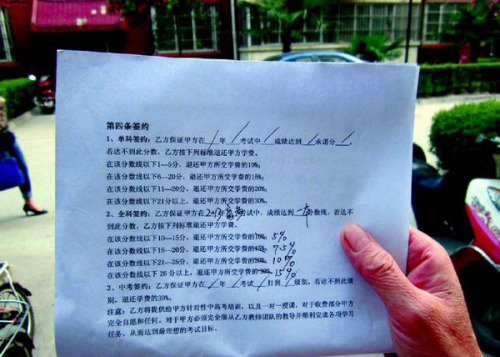 第四条签约
1、单科签约：乙方保证甲方在 / 年 / 考试中 / 成绩达到 / 承诺分 / ，
若达不到此分数，乙方按下列标准退还甲方学费。
在该分数线以下1—5分，退还甲方所交学费的10%；
在该分数线以下6—20分，退还甲方所交学费的15%；
在该分数线以下11—20分，退还甲方所交学费的20%；
在该分数线以下21分以上，退还甲方所交学费的30%。
2、全科签约：乙方保证甲方在 考试中，成绩达到一本分数线，若达不
到此分数，乙方按下列标准退还甲方学费。
在该分数线以下10—15分，退还甲方所交学费的 5%
在该分数线以下16—20分，退还甲方所交学费的 7.5%
在该分数线以下21—25分，退还甲方所交学费的 10%
在该分数线以下 26 分以上，退还甲方所交学费的 15%
3、中考签约：乙方保证甲方在 / 年 / 考试 / 打到 / 级别，若达不到此级
别，退还学费的30%。
注意：乙方将提供给甲方针对性中高考培训，以及一对一授课，对于收费部分甲方
完全自愿和任何。对于甲方必须完全服从乙方教师团队的教导并顺利完成各项学习
任务，从而达到最理想的考试目标。